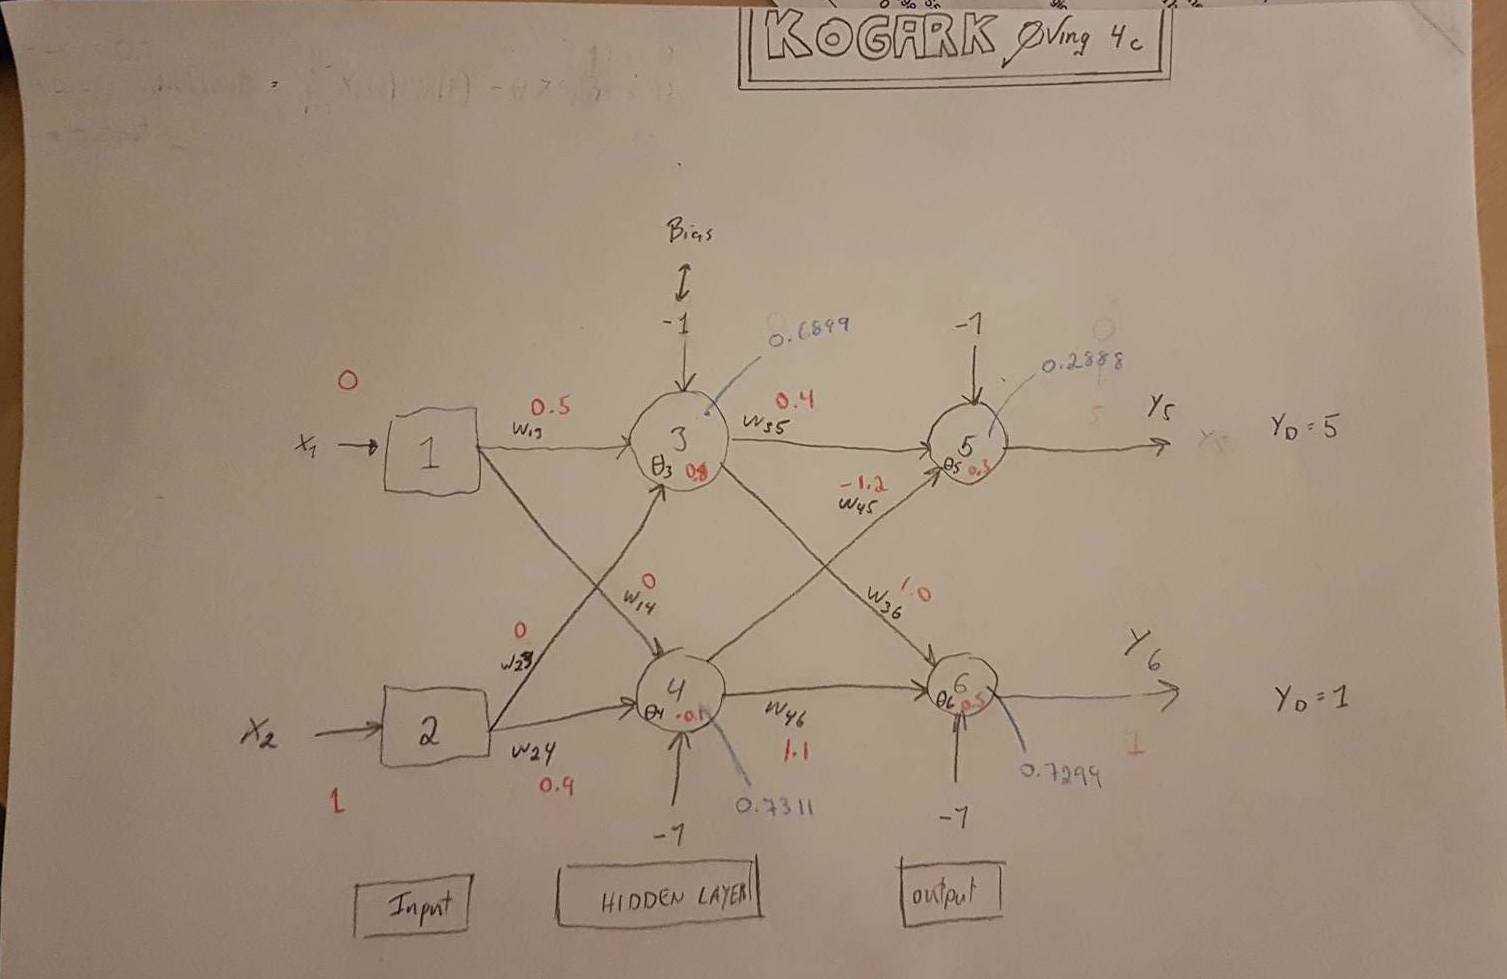 KOGARK Øving 4c
Bias
-1
-1
0.6899
0.2888
0
0.5
0.4
x1
1
w13
3
θ3 0.8
w35
5
θ5 0.3
Y5
YD = 5
-1.2
w45
0
w14
1.0
w36
0
w23
X2
2
4
θ4 -0.1
w46
6
θ6 0.5
Y6
YD = 1
w24
0.9
1.1
1
1
0.7311
0.7299
-1
-1
Input
HIDDEN LAYER
output